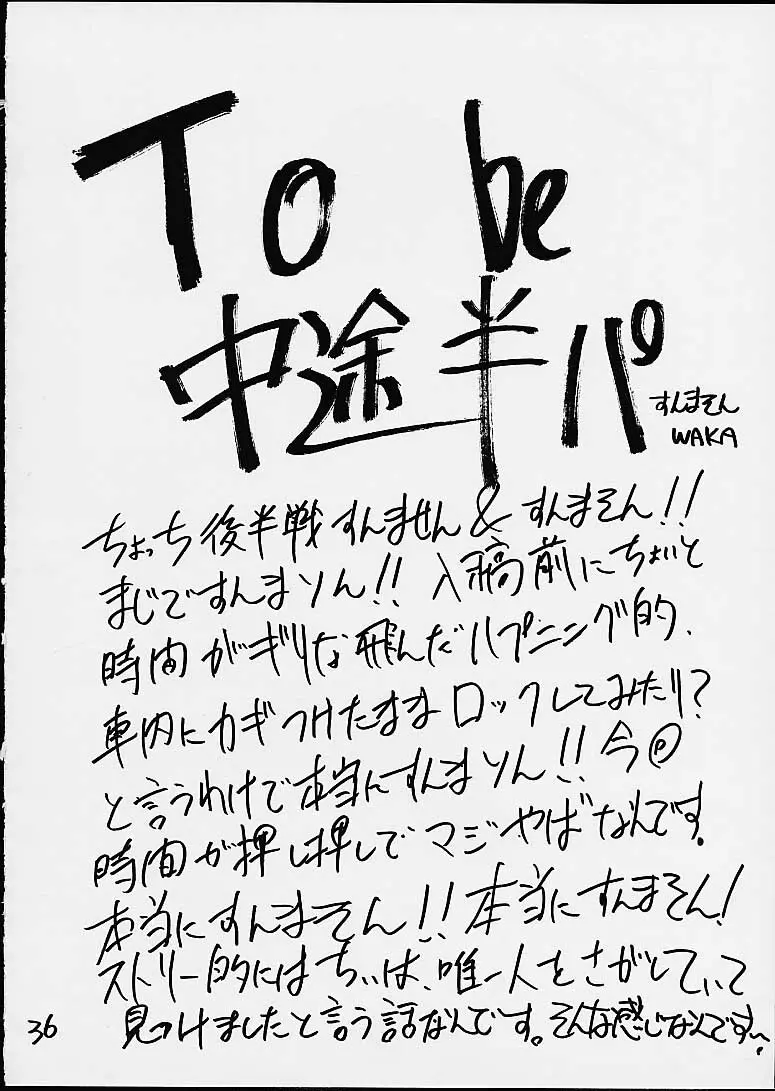 To be
中途半パ
すんまそん
WAKA
ちょっち後半戦すんません&すんまそん!!
まじですんまソん!! 入稿前にちょいと
時間がギリな飛んだハプニング的、
車内にカギつけたままロックしてみたり?
と言うわけで本当にすんまソん!! 今P
時間が押し押しでマジやばなんです。
本当にすんまそん!! 本当にすんまそん!
ストーリー的にはちぃは、唯一人をさがしていて
見つけましたと言う話なんです。そんな感じなんです〜。
36